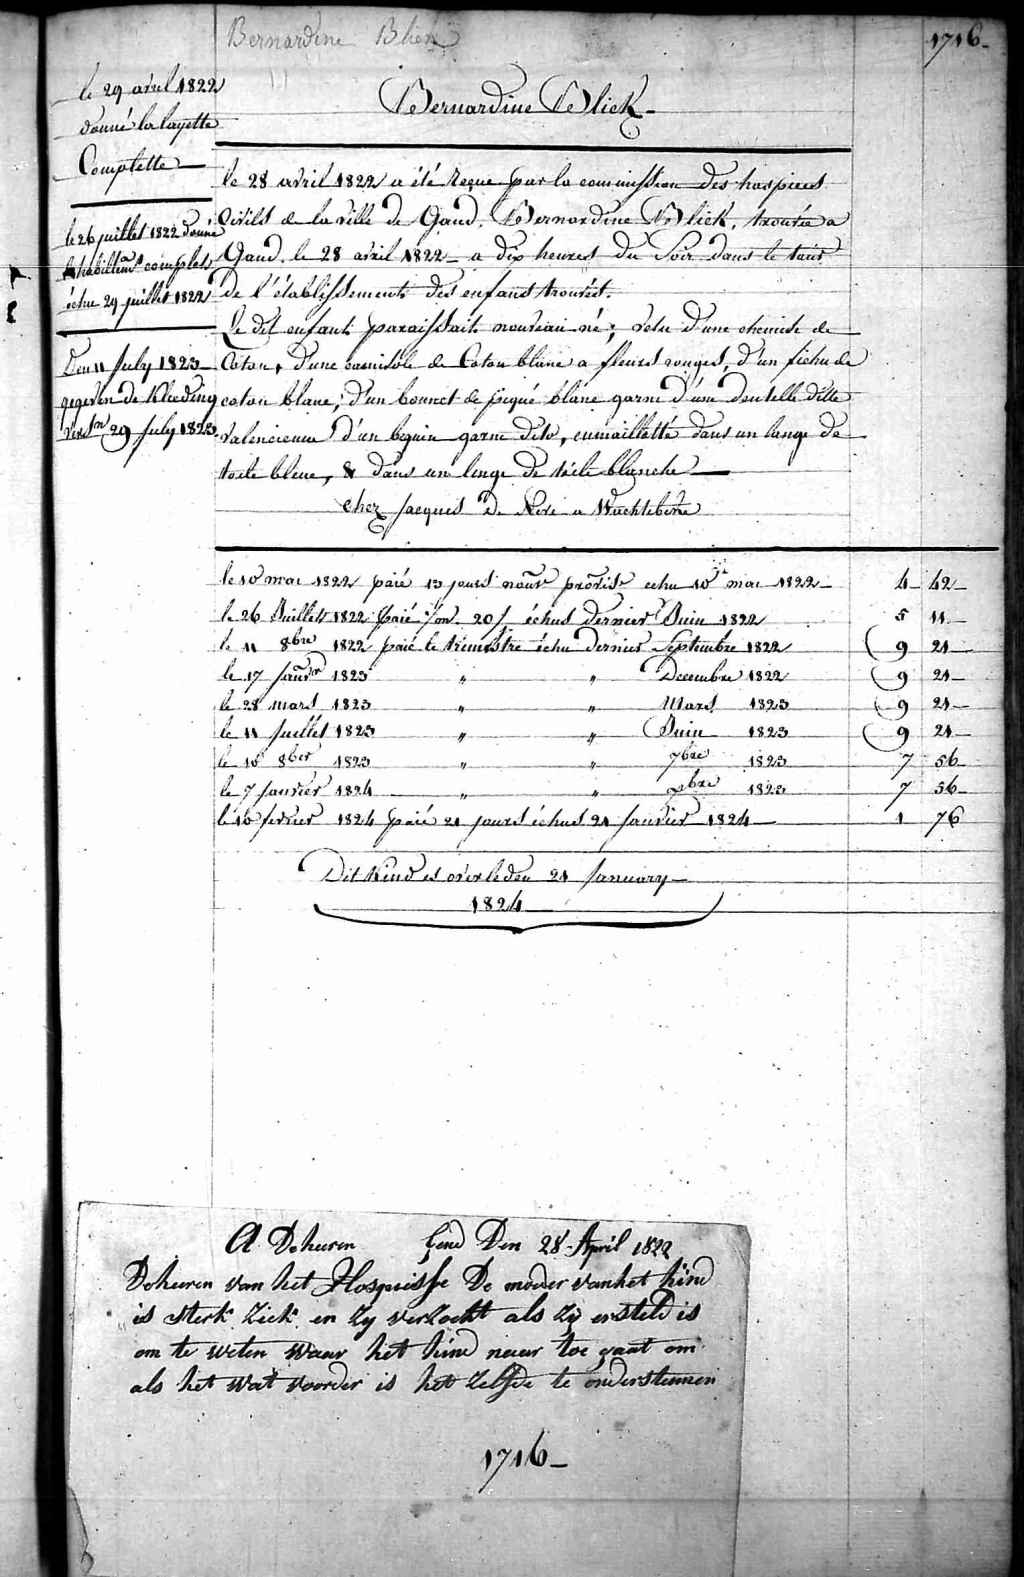 Bernardine Blick
1716-
le 29 avril 1822
donné la layette
Complette
le 26 juillet 1822 donné
habillemt complet
échu 29 juillet 1822
Den 11 July 1823
gegeven de Kleeding
29 July 1823
Bernardine Blick
le 28 avril 1822 a été reçue par la commission des hospices
Civils de la ville de Gand, Bernardine Blick, trouvée a
Gand, le 28 avril 1822 a dix heures du Soir dans le tour
de l'établissement des enfans trouvés.
Le dit enfant paraissait nouveau né; vetu d'une chemise de
Coton, d'une camisole de Coton blanc a fleurs rouges, d'un fichu de
coton blanc, d'un bonnet de piqué blanc garni d'une dentelle ditte
valencienne d'un beguin garni dito, enmaillotté dans un lange de
toile bleue, & dans un linge de toile blanche
chez Jacques De a Wachtebeke
le 10 mai 1822 paié 13 jours nourre provisre echu 10 mai 1822 4 42
le 26 Juillet 1822 paié 20/ échus dernier Juin 1822 5 11
le 11 8bre 1822 paié le trimestre échu dernier Septembre 1822 9 21
le 17 Janvr 1823 " " Decembre 1822 9 21
le 28 mars 1823 " " Mars 1823 9 21
le 11 juillet 1823 " " Juin 1823 9 21
le 10 8ber 1823 " " 7bre 1823 7 56
le 7 Janvier 1824 " " Xbre 1823 7 56
le 16 fevrier 1824 paié 21 jours échus 21 Janvier 1824 1 76
Dit Kind is overleden 21 January
1824
A Deheeren Gend Den 28 April 1822
Deheeren van het Hospisse De moeder van het kind
is sterk ziek en zy verzockt als zy ersteld is
om te weten waar het kind naar toe gaat om
als het wat voorder is het zelfde te ondersteunen
1716-